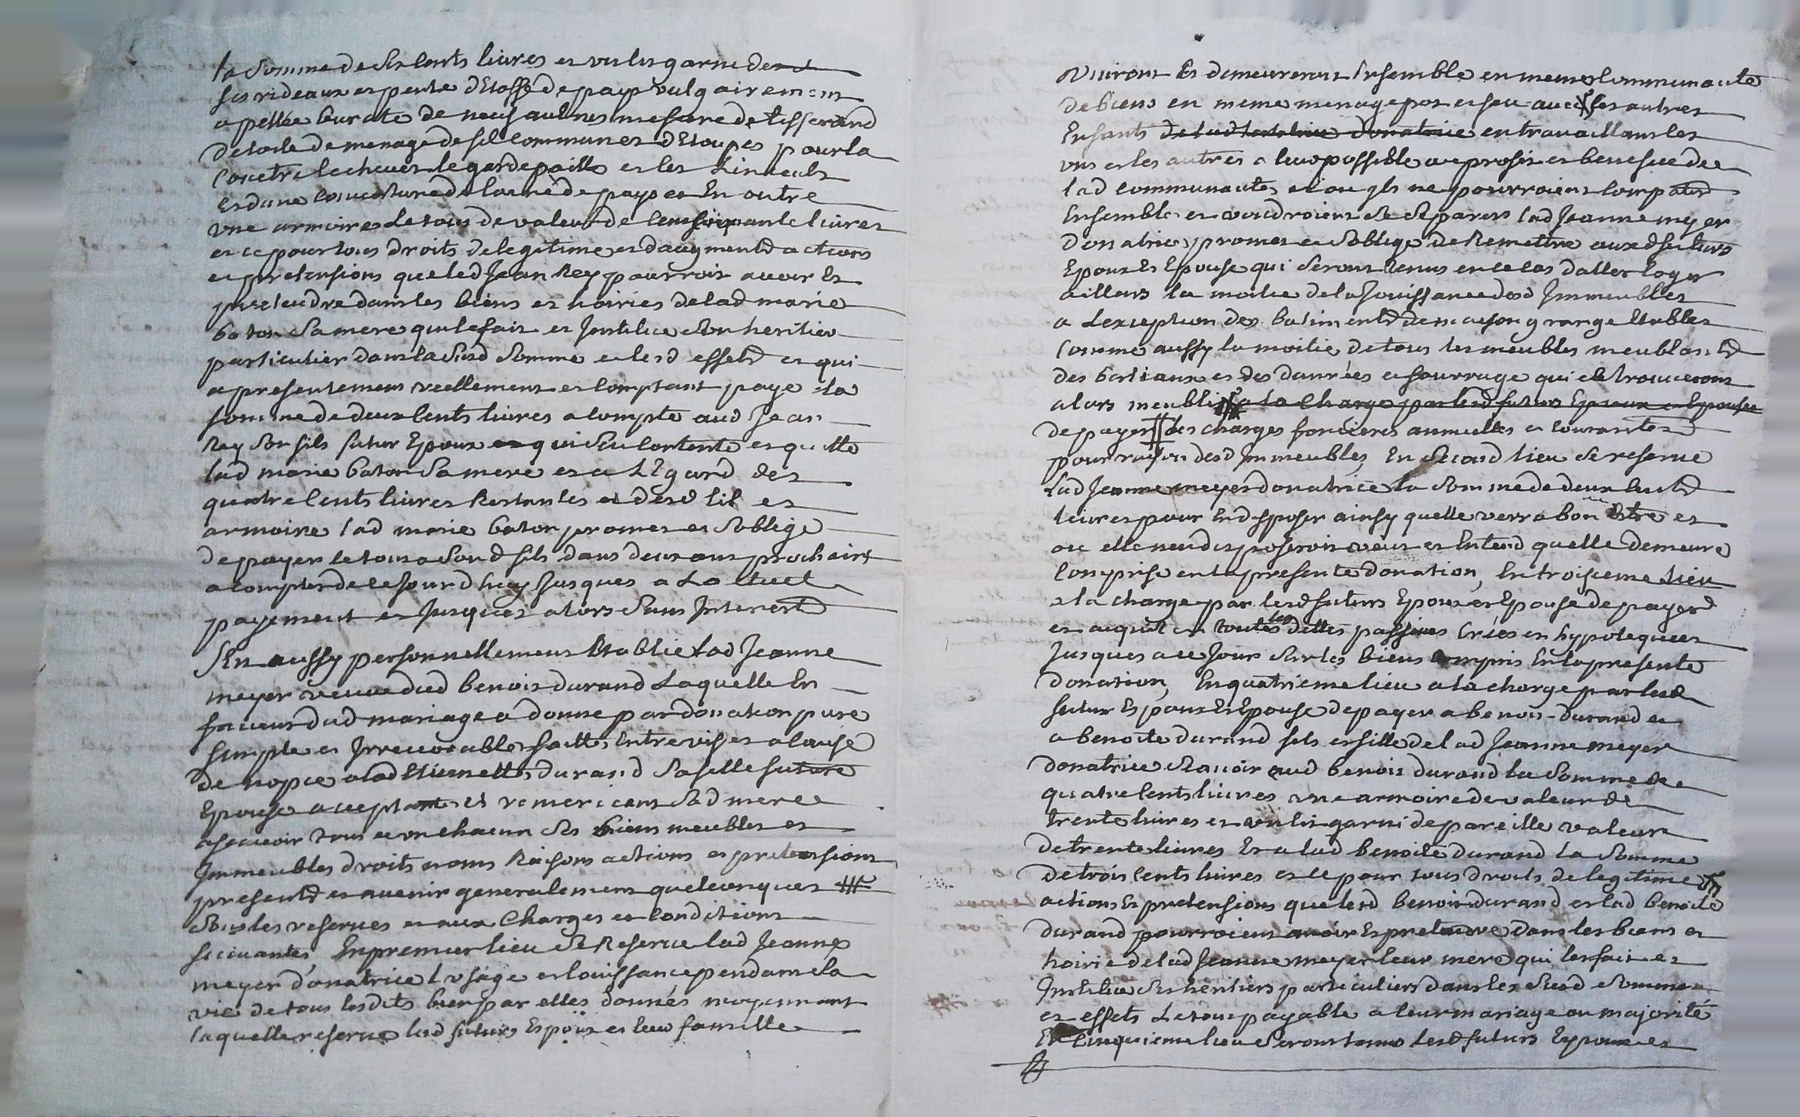 la somme de six cents livres et un lit garni de
ses rideaux et pente d'Etoffe de pays vulgairement
appellée burate de neuf aulnes mesure de tisserand
de toile de menage de fil commune et d'Etoupes pour la
Couetre le chevet le gardepaille et les Linceuls
Et d'une Couverture de laine de pays et En outre
une armoire Le tout de valeur de cent livres
et ce pour tous droits de legitime et d'augment actions
et pretensions que led Jean Rey pourroit avoir Et
pretendre dans les biens et hoiries de lad marie
baton Sa mere qui le fait et Institue son heritier
particulier dans la Susd Somme et lesd effets et qui
a presentement reellement et Comptant payé la
somme de deux Cents livres a Compte aud Jean
Rey Son fils futur Epoux qui s'en Contente et quitte
lad marie baton Sa mere et a L'Egard des
quatre Cents livres Restantes et desd lit et
armoire lad marie baton promet et S'oblige
de payer Le tout a Sond fils dans deux ans prochains
a Compter de ce Jourd huy Jusques a La
payement et Jusques alors Sans Interest
S'En aussy personnellement Etablie Lad Jeanne
meyer veuve dud benoit durand Laquelle En
faveur dud mariage a donné par donation pure
Simple et Irrevocable faitte Entre vifs et a Cause
de nopce a lad Etiennette durand Sa fille future
Epouse acceptante et remerciant Sad mere
ascavoir tous et un chacun Ses biens meubles et
Immeubles droits noms Raisons actions et pretensions
presents et avenir generalement quelconques
Sous les reserves et aux Charges et Conditions
suivantes En premier lieu Se Reserve lad Jeanne
meyer donatrice L'usage et Jouissance pendant la
vie de tous lesdits biens par elles donnés moyennant
laquelle reserve lesd futurs Epoux et leur famille
vivront Et demeureront Ensemble en meme Communauté
de biens en meme menage pot et feu avec ses autres
Enfants de lad donatrice en travaillant les
uns et les autres a leur possible au profit et benefice de
lad Communauté, et ou ils ne pourroient Compatir
Ensemble et voudroient Se Separer lad Jeanne meyer
Donatrice promet et S'oblige de Remettre auxd futurs
Epoux Et Epouse qui Seront tenus en ce Cas d'aller loger
ailleurs la moitié de la Jouissance desd Immeubles
a L'exception des batiments de maison grange Etables
Comme aussy la moitié de tous les meubles meublants
des bestiaux et des danrées et fourrage qui se trouveront
alors a la Charge par lesd futurs Epoux et Epouse
de payer les charges foncieres annuelles et Courantes
pour raison desd Immeubles, En Second lieu Se reserve
Lad Jeanne meyer donatrice La Somme de deux Cents
livres pour En disposer ainsy quelle verra bon Etre et
ou elle n'en disposeroit veut et Entend quelle demeure
Comprise en la presente donation, En troisieme lieu
a la charge par lesd futurs Epoux et Epouse de payer
et acquitter toutes les dettes passives Crées et hypotequées
Jusques a ce Jour Sur les biens Compris En la presente
donation, En quatrieme lieu a la charge par lesd
futur Epoux Et Epouse de payer a benoit durand et
a benoite durand fils et fille de lad Jeanne meyer
donatrice Scavoir aud benoit durand la Somme de
quatre Cents livres une armoire de valeur de
trente livres et un lit garni de pareille valeur
de trente livres Et a lad benoite durand la Somme
de trois Cents livres et ce pour tous droits de legitime
actions Et pretensions que lesd benoit durand et lad benoite
durand pourroient avoir Et pretendre dans les biens et
hoirie de lad Jeanne meyer leur mere qui les fait et
Institue Ses heritiers particuliers dans les Susd Sommes
et effets Le tout payable a leur mariage ou majorité
En Cinquieme lieu Seront tenus Lesd futurs Epoux et